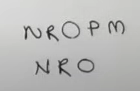 NROPM
NRO